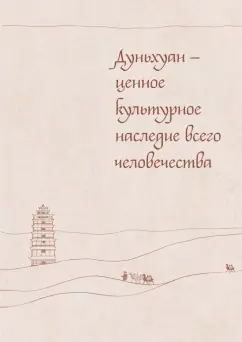 Дуньхуан –
ценное
культурное
наследие всего
человечества